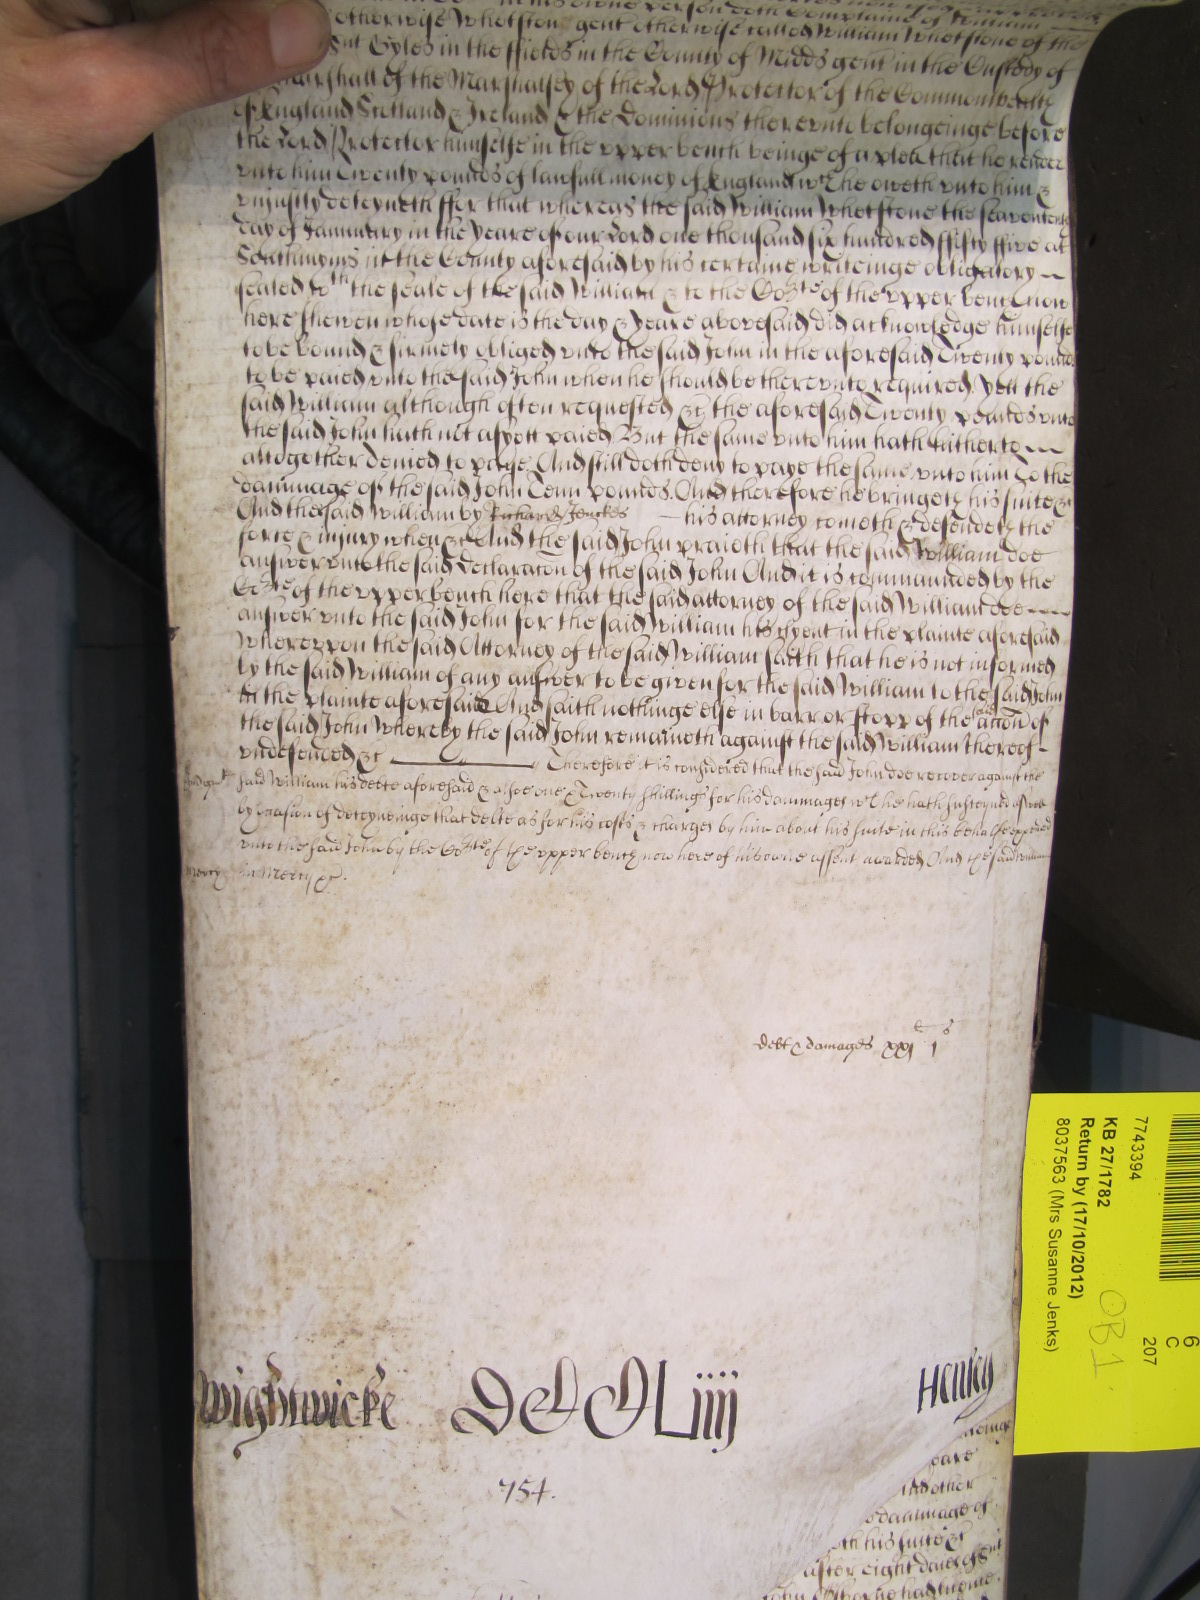 in his owne person doth Complaine of William
otherwise Whetston gent otherwise called William Whetstone of the
Gyles in the ffields in the County of Midds gent in the Custody of
Marshall of the Marshalsey of the Lord Protector of the Commonwealth
of England Scotland & Ireland & the Dominions therevnto belongeinge before
the Lord Protector himselfe in the vpper bench beinge of a plea that he render
vnto him Twenty pounds of lawfull money of England wch he oweth vnto him &
vniustly deteyneth ffor that whereas the said William Whetstone the seaventeenth
day of Januuary in the yeare of our Lord one thousand six hundred ffifty ffive at
in the County aforesaid by his certaine writeinge obligatory
sealed wth the seale of the said William & to the Cote of the vpper bench now
here shewen whose date is the day & yeare abovesaid did acknowledge himselfe
to be bound & firmely obliged vnto the said John in the aforesaid Twenty pounds
to be paied vnto the said John when he should be therevnto required Yett the
said William although often requested &c the aforesaid Twenty pounds vnto
the said John hath not as yett paied But the same vnto him hath hitherto
altogether denied to paye And still doth deny to paye the same vnto him To the
dammage of the said John Tenn pounds And therefore he bringeth his suite &c
And the said William by Richard Jenckes his attorney cometh & defendeth the
force & injury when &c And the said John praieth that the said William doe
answer vnto the said declaracon of the said John And it is commanded by the
Cote of the vpper bench here that the said attorney of the said William doe
answer vnto the said John for the said William his clyent in the plainte aforesaid
Wherevpon the said Attorney of the said William saith that he is not informed
by the said William of any answer to be given for the said William to the said John
in the plainte aforesaid And saith nothinge else in barr or stopp of the said accon of
the said John Whereby the said John remaineth against the said William thereof
vndefended &c Therefore it is considered that the said John doe recover against the
said William his debte aforesaid & alsoe one & Twenty shillings for his dammages wch he hath susteyned aswell
by occasion of deteyneinge that debte as for his costs & charges by him about his suite in this behalfe expended
vnto the said John by the Cote of the vpper bench now here of his owne assent awarded And the said William
Mercy in Mercy &c.
debt & damages xxj l j s
Wightwicke DCCLiiij Henley
754.
pare
And other
dammage of
his suite &c
after eight daies of
7743394
KB 27/1782
Return by (17/10/2012)
8037563 (Mrs Susanne Jenks)
OB1
6
C
207